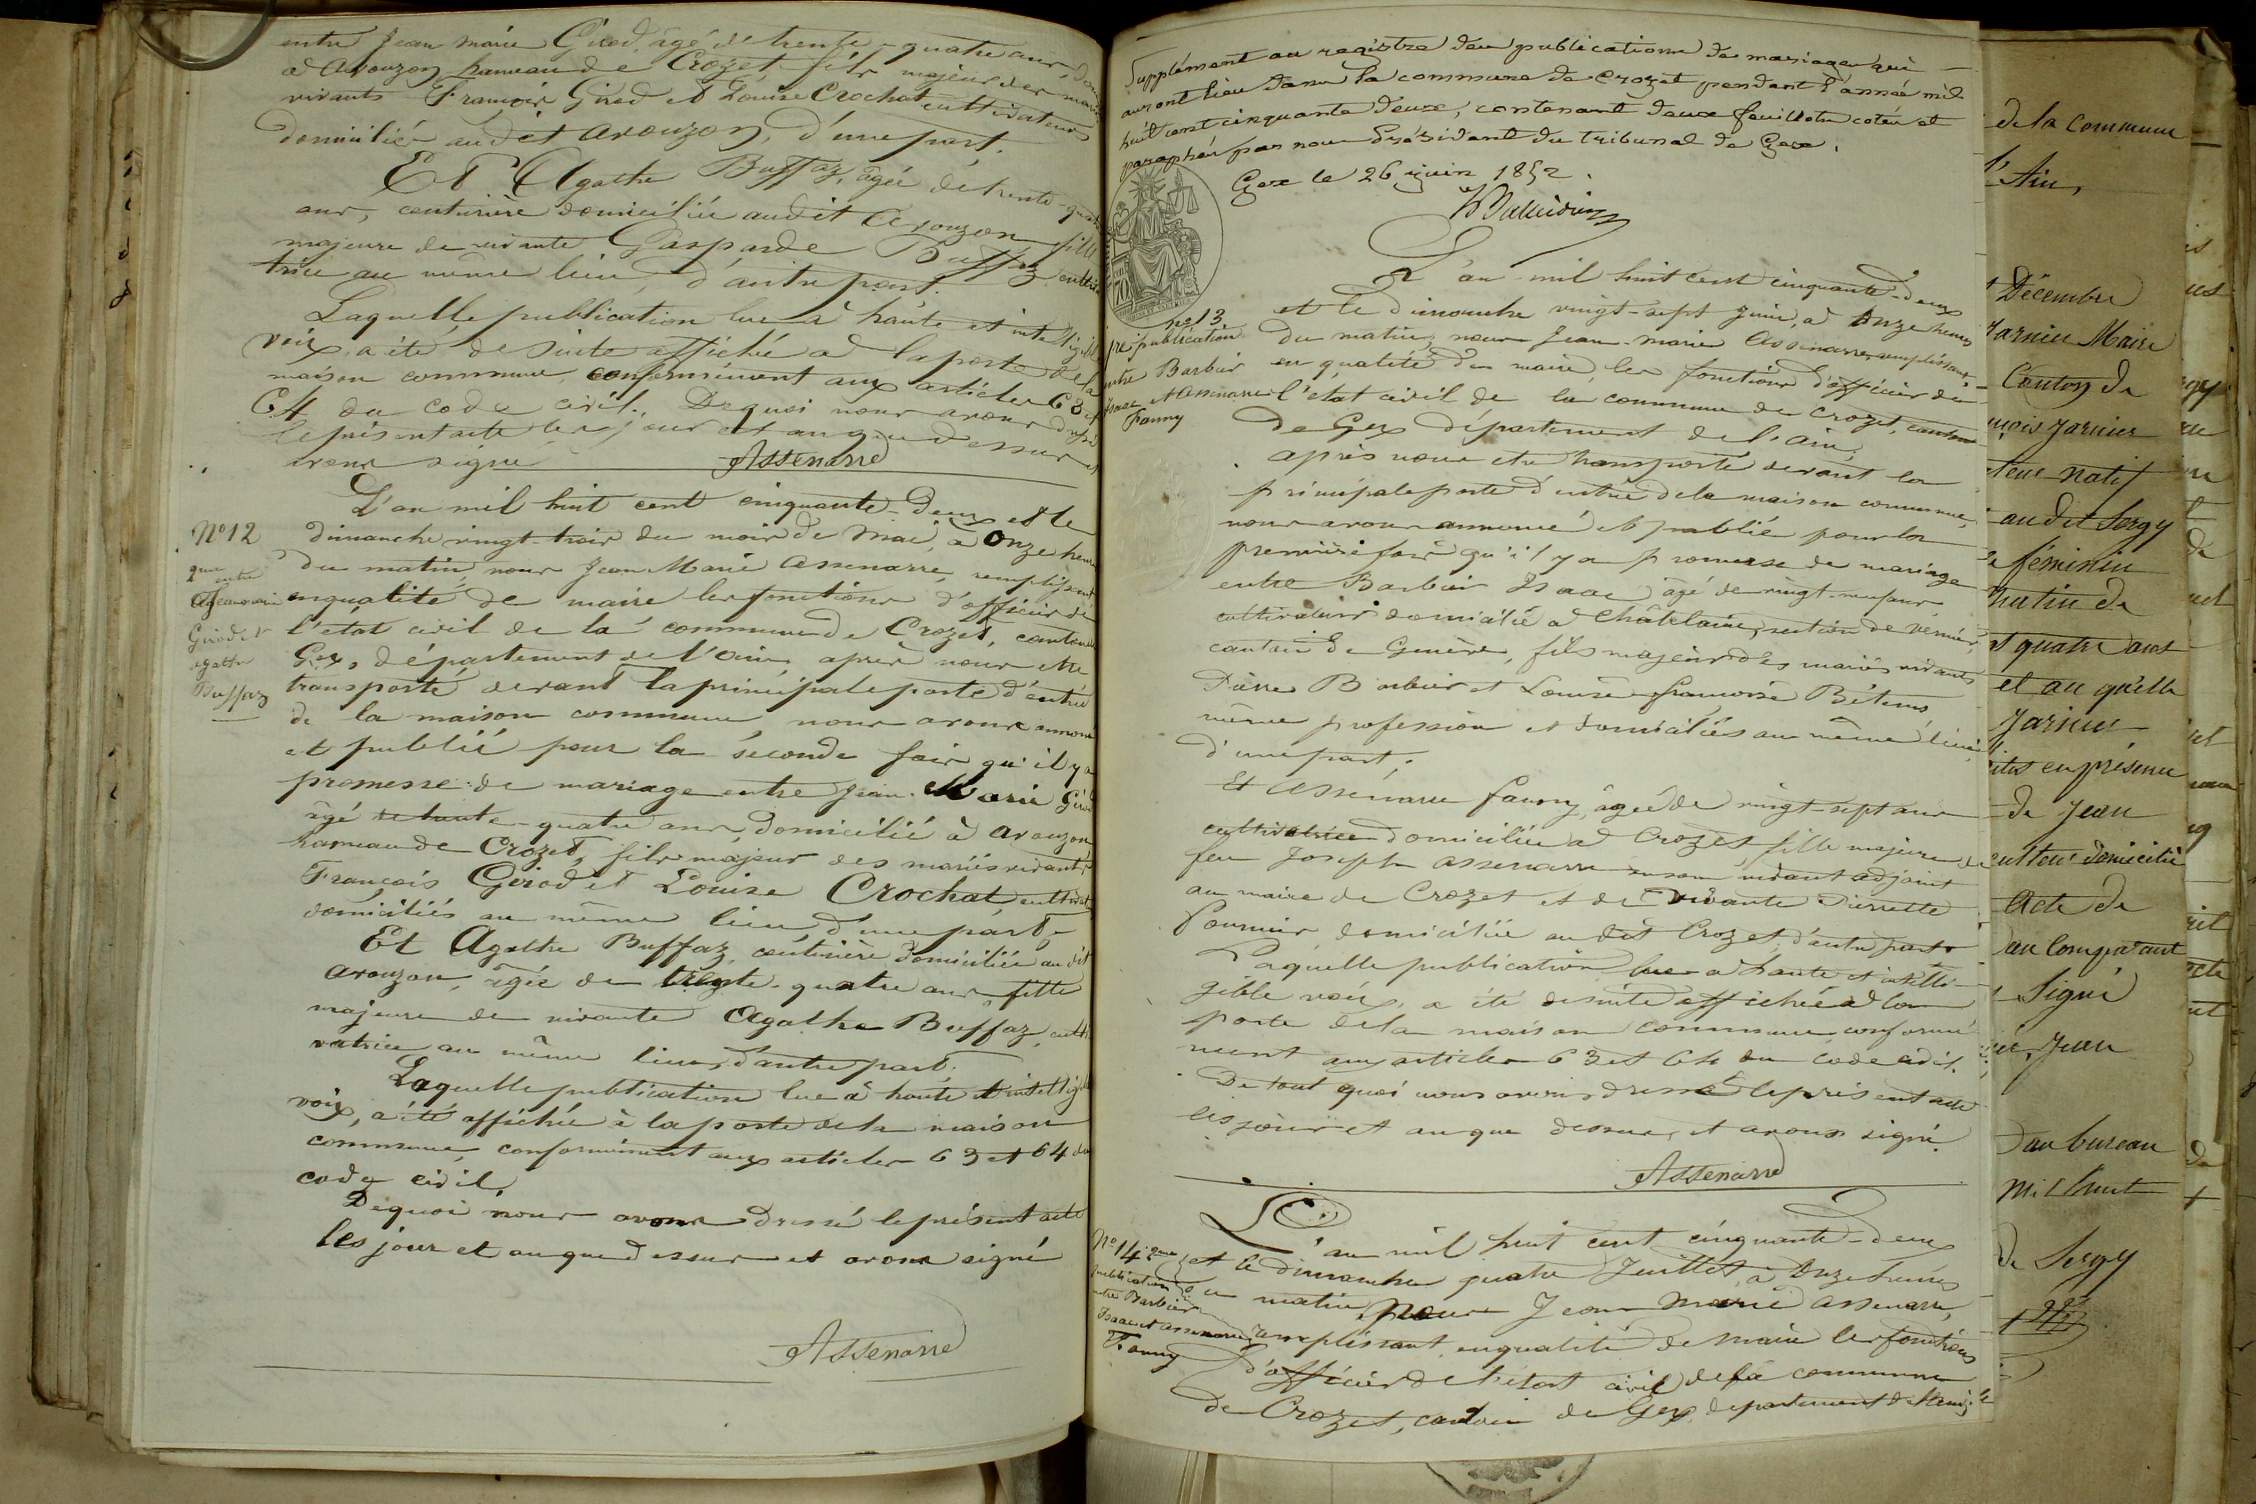 entre Jean Marie Girod, âgé de trente-quatre ans,
à Avouzon hameau de Crozet fils majeur des mariés
vivants François Girod et Louise Crochat cultivateurs
domiciliés audit Avouzon, d'une part.
Et Agathe Buffaz, âgée de trente-quatre
ans, couturière domiciliée audit Avouzon fille
majeure de vivante Gasparde Buffaz
trice au même lieu, d'autre part.
Laquelle publication lue à haute et intelligible
voix, a été de suite affichée à la porte de la
maison commune, conformément aux articles 63 et
64 du code civil. De quoi nous avons dressé
le présent acte les jour et an que dessus et
avons signé
Assenarre
N° 12
2me
entre
Jean marie
Girod et
agathe
Buffaz
L'an mil huit cent cinquante-deux et le
dimanche vingt-trois du mois de Mai, à Onze heures
du matin, nous Jean Marie Assenarre, remplissant
en qualité de maire les fonctions d'officier de
l'état civil de la commune de Crozet, canton de
Gex, département de l'Ain, après nous être
transporté devant la principale porte d'entrée
de la maison commune, nous avons annoncé
et publié pour la seconde fois qu'il y a
promesse de mariage entre Jean-Marie Girod
âgé de trente-quatre ans, domicilié à Avouzon
hameau de Crozet, fils majeur des mariés vivants
François Girod et Louise Crochat,
domiciliés au même lieu, d'une part
Et Agathe Buffaz, couturière domiciliée au dit
Avouzon, âgée de trente-quatre ans, fille
majeure de vivante Agathe Buffaz, culti
vatrice au même lieu, d'autre part.
Laquelle publication lue à haute et intelligible
voix, a été affichée à la porte de la maison
commune, conformément aux articles 63 et 64 du
code civil.
De quoi nous avons dressé le présent acte
les jour et an que dessus et avons signé
Assenarre
Supplément au registre des publications de mariages qui
auront lieu dans la commune de Crozet pendant l'année mil
huit cent cinquante deux, contenant deux feuillets cotés et
paraphés par nous Président du tribunal de Gex.
Gex le 26 juin 1852.
70
n° 13
pre publication
entre Barbier
Isaac et Assenarre
Fanny
L'an mil huit cent cinquante-deux
et le Dimanche vingt-sept Juin, à Onze heures
du matin, nous Jean-Marie Assenarre, remplissant
en qualité de maire, les fonctions d'officier de
l'état civil de la commune de Crozet, canton
de Gex département de l'Ain,
après nous être transporté devant la
principale porte d'entrée de la maison commune,
nous avons annoncé et publié pour la
première fois qu'il y a promesse de mariage
entre Barbier Isaac, âgé de vingt-neuf ans
cultivateur domicilié à Châtelaine, section de Vernier,
canton de Genève, fils majeur des mariés vivants
Pierre Barbier et Louise françoise Bétems
même profession et domiciliés au même lieu,
d'une part;
Et Assenarre fanny, âgée de vingt-sept ans
cultivatrice domiciliée à Crozet, fille majeure de
feu Joseph Assenarre vivant adjoint
au maire de Crozet et de vivante Pierrette
Fournier, domiciliée au dit Crozet, d'autre part.
Laquelle publication lue à haute et intelli-
gible voix, a été de suite affichée à la
porte de la maison commune conformé-
ment aux articles 63 et 64 du code civil.
De tout quoi nous avons dressé le présent acte
les jour et an que dessus, et avons signé.
Assenarre
N° 14. 2me
publication
entre Barbier
Isaac et Assenarre
Fanny
L'an mil huit cent cinquante-deux
et le dimanche quatre Juillet, à Onze heures
du matin, nous Jean Marie Assenarre,
remplissant en qualité de maire les fonctions
d'officier de l'état civil de la commune
de Crozet, canton de Gex, département de l'Ain,
de la commune
l'Ain,
Décembre
Jarnier Maire
Canton de
Jarnier
natif
audit Sergy
féminin
matin de
quatre aout
et au qu'elle
Jarnier
en présence
de Jean
domicilié
Acte de
au Comparant
Signé
Jean
au bureau
mil huit
de Sergy